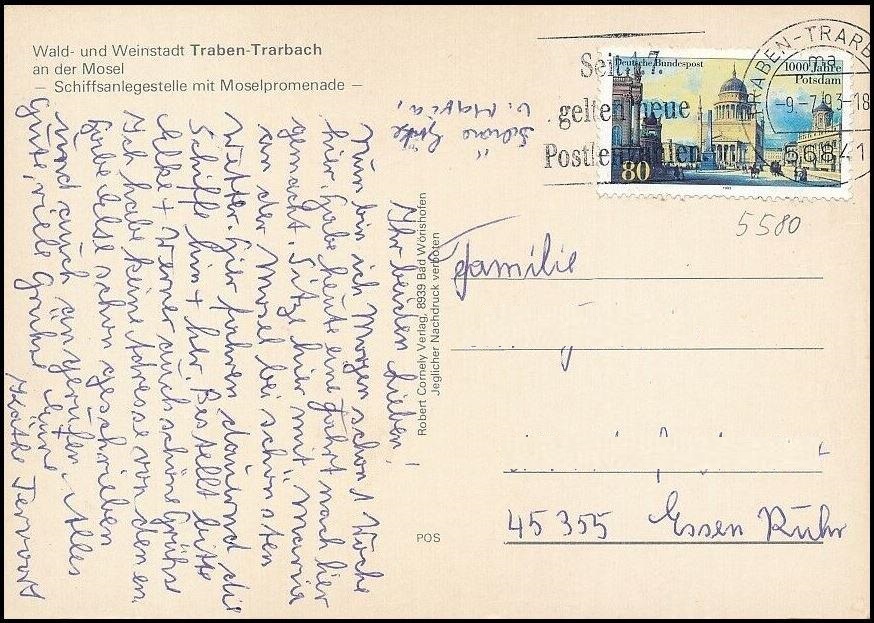 Wald- und Weinstadt Traben-Trarbach
an der Mosel
— Schiffsanlegestelle mit Moselpromenade —
Seit 1.7.
gelten neue
Postleitzahlen
Deutsche Bundespost
1000 Jahre
Potsdam
80
1993
TRABEN-TRARB
ma
-9.-7.93-18
56841
5580
Ihr beiden Lieben!
Nun bin ich Morgen schon 1 Woche
hier. Habe heute eine Fahrt nach hier
gemacht. Sitze hier mit Maria
an der Mosel bei schönsten
Wetter. Hier fahren dauernd die
Schiffe hin + her. Bestellt bitte
Elke + Werner auch schöne Grüße
Ich habe keine Adresse von denen.
Habe Else schon geschrieben
und auch angerufen. Alles
Gute, viele Grüße Eure
Käthe Tervoort
Grüße
v. Maria,
Robert Cornely Verlag, 8939 Bad Wörishofen
Jeglicher Nachdruck verboten
POS
Familie
45355 Essen Ruhr